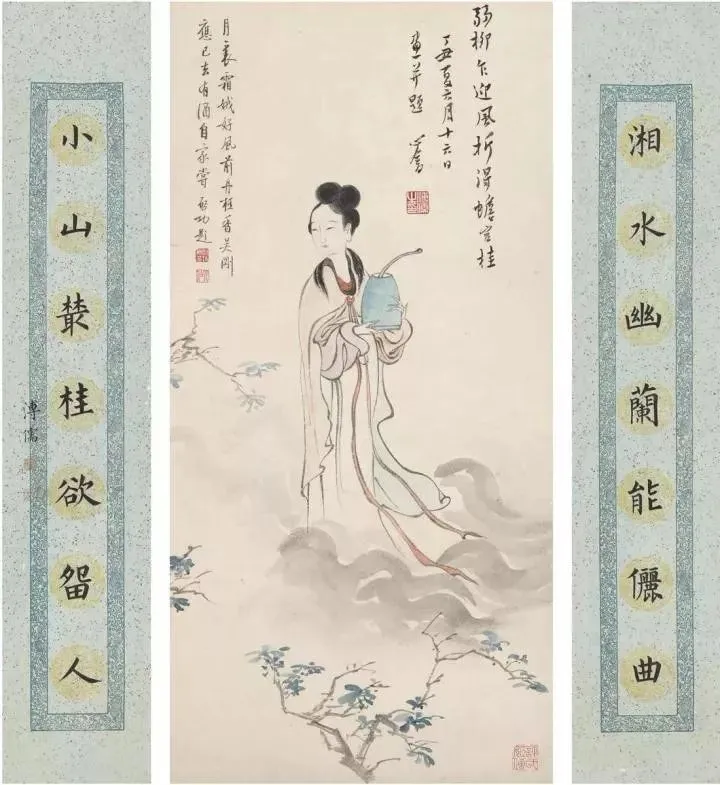 湘水幽蘭能儷曲
弱柳乍迎風折得蟾宮桂
丁丑夏六月十六日
畫并題
月裏霜娥好風前丹桂香吳剛
應已去有酒自家嘗啟功題
小山叢桂欲畱人
溥儒